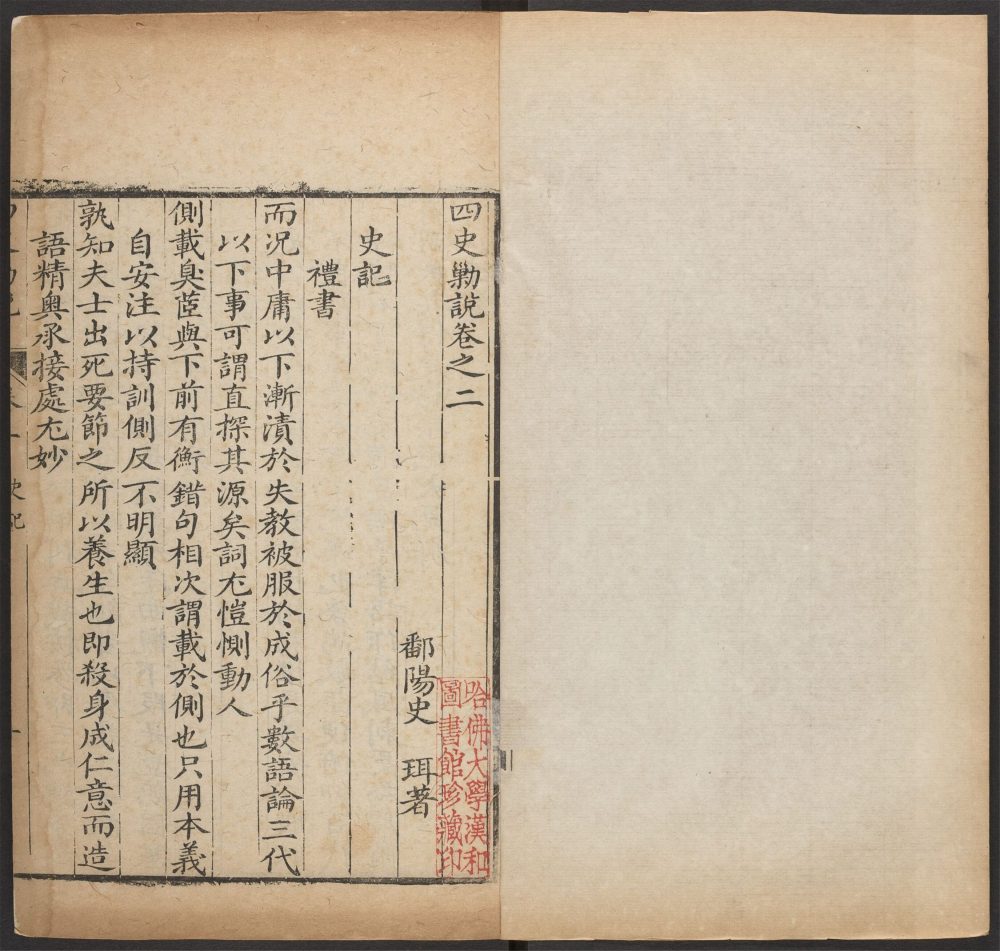 四史勦説卷之二
鄱陽史 珥著
哈佛大學漢和
圖書館珍藏印
史記
禮書
而况中庸以下漸漬於失教被服於成俗乎數語論三代
以下事可謂直探其源矣詞尤愷惻動人
側載臭茝與下前有衡錯句相次謂載於側也只用本義
自安注以持訓側反不明顯
孰知夫士出死要節之所以養生也即殺身成仁意而造
語精奥承接處尤妙
史記